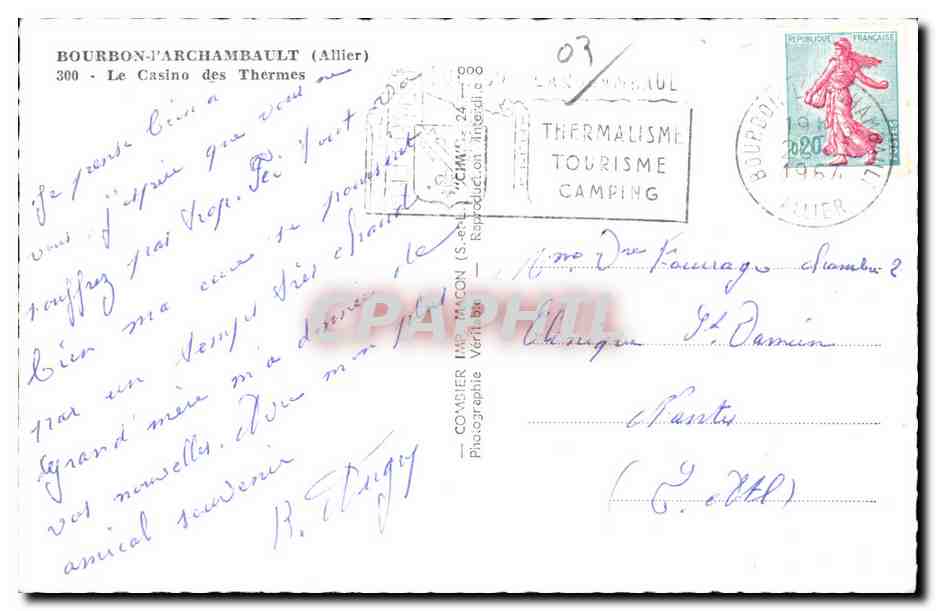 BOURBON-l'ARCHAMBAULT (Allier)
300 - Le Casino des Thermes
Je pense bien à
vous j'espère que vous ne
souffrez pas trop. Ici tout va
bien ma cure se poursuit
par un temps très chaud.
grand'mère m'a donné de
vos nouvelles. Avec mon plus
amical souvenir
R.
— COMBIER IMP. MACON (S.-et-L.) "CIM" — 24 —
Photographie Véritable — Reproduction Interdite
03
THERMALISME
TOURISME
CAMPING
REPUBLIQUE FRANÇAISE
0,20
POSTES
BOURBON L'ARCHAMBAULT
ALLIER
Mme Chambre 2
Clinique St Damien
Nantes
(L. Atl)
CPAPHIL